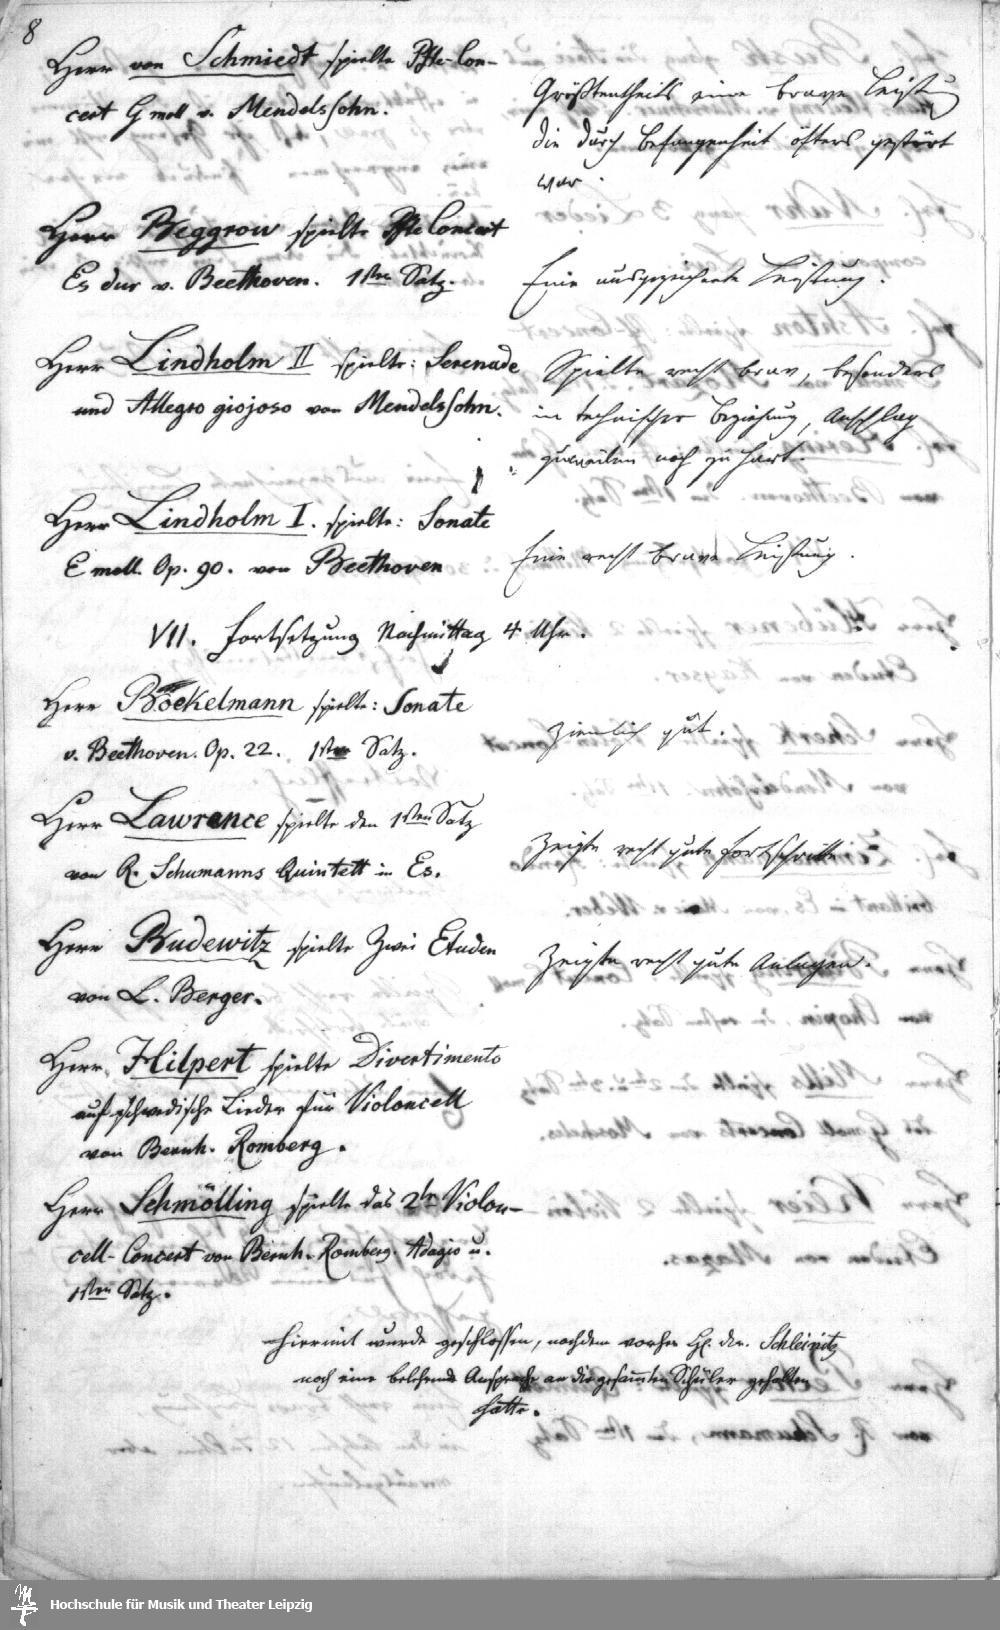 8
Herr von Schmiedt spielte Pfte-Con-
cert G moll v. Mendelssohn.
Größtentheils eine brave Leistung
die durch Befangenheit öfters gestört
war.
Herr Beggrow spielte Pfte Concert
Es dur v. Beethoven. 1sten Satz.
Eine ausgezeichnete Leistung.
Herr Lindholm II spielte: Serenade
und Allegro giojoso von Mendelssohn.
Spielte recht brav, besonders
in technischer Beziehung, Anschlag
zuweilen noch zu hart.
Herr Lindholm I. spielte: Sonate
E moll. Op. 90. von Beethoven
Eine recht brave Leistung.
VII. Fortsetzung Nachmittag 4 Uhr.
Herr Böckelmann spielte: Sonate
v. Beethoven. Op. 22. 1sten Satz.
Ziemlich gut.
Herr Lawrence spielte den 1sten Satz
von R. Schumanns Quintett in Es.
Zeigte recht gute Fortschritte
Herr Budewitz spielte Zwei Etuden
von L. Berger.
Zeigte recht gute Anlagen.
Herr Hilpert spielte Divertimento
auf schwedische Lieder für Violoncell
von Bernh. Romberg.
Herr Schmölling spielte das 2te Violon-
cell-Concert von Bernh. Romberg. Adagio u.
1sten Satz.
Hiermit wurde geschlossen, nachdem vorher H. Dr. Schleinitz
noch eine belehrende Ansprache an die gesammten Schüler gehalten
hatte.
Hochschule für Musik und Theater Leipzig